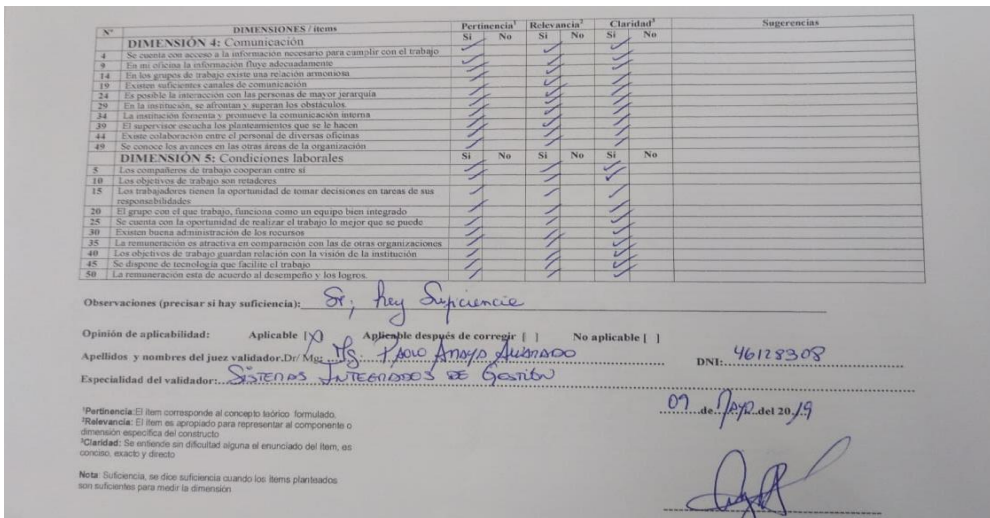 Nº DIMENSIONES / ítems Pertinencia¹ Relevancia² Claridad³ Sugerencias
DIMENSIÓN 4: Comunicación Si No Si No Si No
4 Se cuenta con acceso a la información necesario para cumplir con el trabajo
9 En mi oficina la información fluye adecuadamente
14 En los grupos de trabajo existe una relación armoniosa
19 Existen suficientes canales de comunicación
24 Es posible la interacción con las personas de mayor jerarquía
29 En la institución, se afrontan y superan los obstáculos
34 La institución fomenta y promueve la comunicación interna
39 El supervisor escucha los planteamientos que se le hacen
44 Existe colaboración entre el personal de diversas oficinas
49 Se conoce los avances en las otras áreas de la organización
DIMENSIÓN 5: Condiciones laborales Si No Si No Si No
5 Los compañeros de trabajo cooperan entre si
10 Los objetivos de trabajo son retadores
15 Los trabajadores tienen la oportunidad de tomar decisiones en tareas de sus
responsabilidades
20 El grupo con el que trabajo, funciona como un equipo bien integrado
25 Se cuenta con la oportunidad de realizar el trabajo lo mejor que se puede
30 Existen buena administración de los recursos
35 La remuneración es atractiva en comparación con las de otras organizaciones
40 Los objetivos de trabajo guardan relación con la visión de la institución
45 Se dispone de tecnología que facilite el trabajo
50 La remuneración esta de acuerdo al desempeño y los logros.
Observaciones (precisar si hay suficiencia): Si, hay Suficiencia
Opinión de aplicabilidad: Aplicable [X] Aplicable después de corregir [ ] No aplicable [ ]
Apellidos y nombres del juez validador.Dr/ Mg: Mg. Paolo Amaya DNI: 46128308
Especialidad del validador: Sistemas Integrados de Gestión
09 de Mayo del 2019
¹Pertinencia:El ítem corresponde al concepto teórico formulado.
²Relevancia: El ítem es apropiado para representar al componente o
dimensión específica del constructo
³Claridad: Se entiende sin dificultad alguna el enunciado del ítem, es
conciso, exacto y directo
Nota: Suficiencia, se dice suficiencia cuando los ítems planteados
son suficientes para medir la dimensión